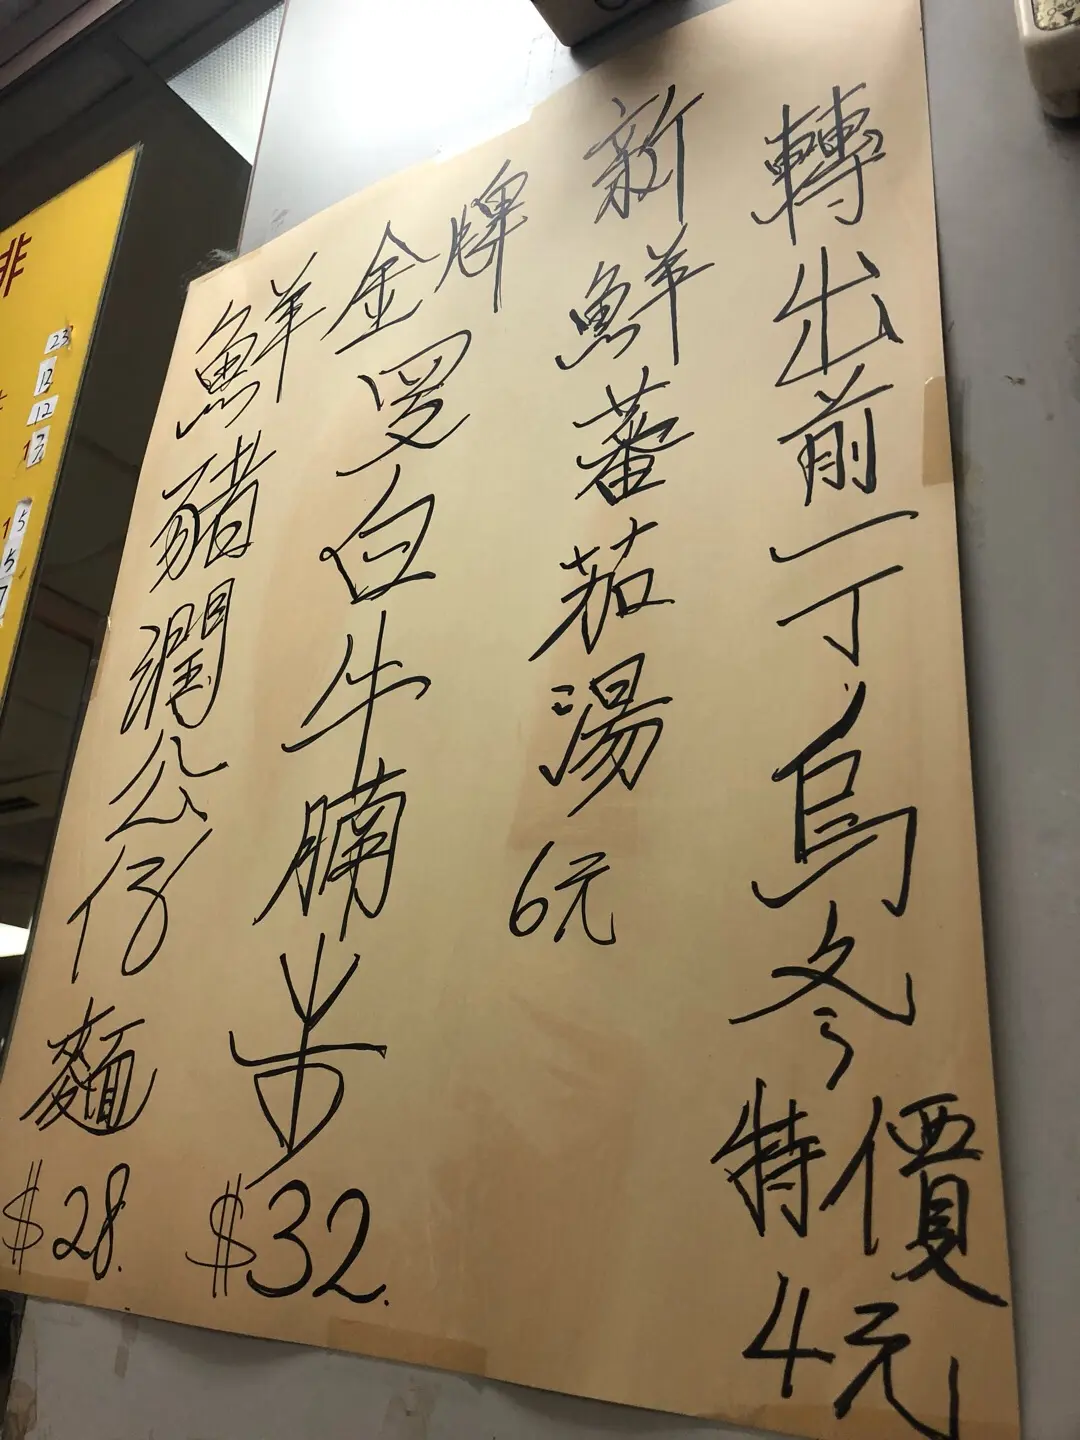 轉出前一丁烏冬
特價
4元
新鮮蕃茄湯
6元
金牌罗白牛腩米
$32.
鮮豬潤公仔麵
$28.
23
12
12
5
5
7